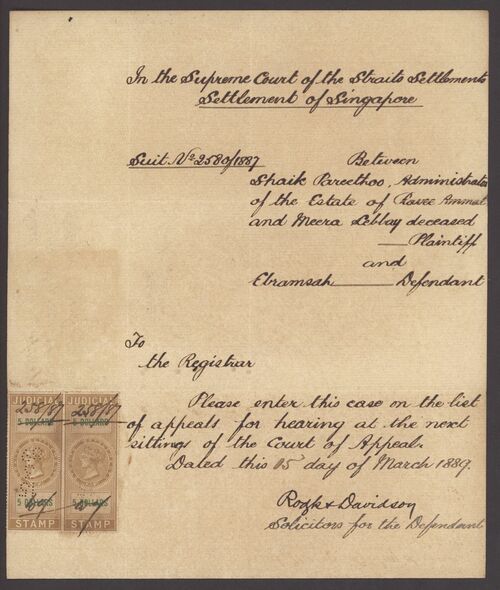 In the Supreme Court of the Straits Settlements
Settlement of Singapore
Suit No 258 of 1887
Between
Shaik Pareethoo, Administrator
of the Estate of Ravee Ammat
and Meera Lebbay deceased
Plaintiff
and
Ebramsah Defendant
To
the Registrar
Please enter this case on the list
of appeals for hearing at the next
sittings of the Court of Appeal.
Dated this 15 day of March 1889.
Rodyk & Davidson
Solicitors for the Defendant
JUDICIAL JUDICIAL
258/87 258/87
5 DOLLARS 5 DOLLARS
5 DOLLARS 5 DOLLARS
STAMP STAMP